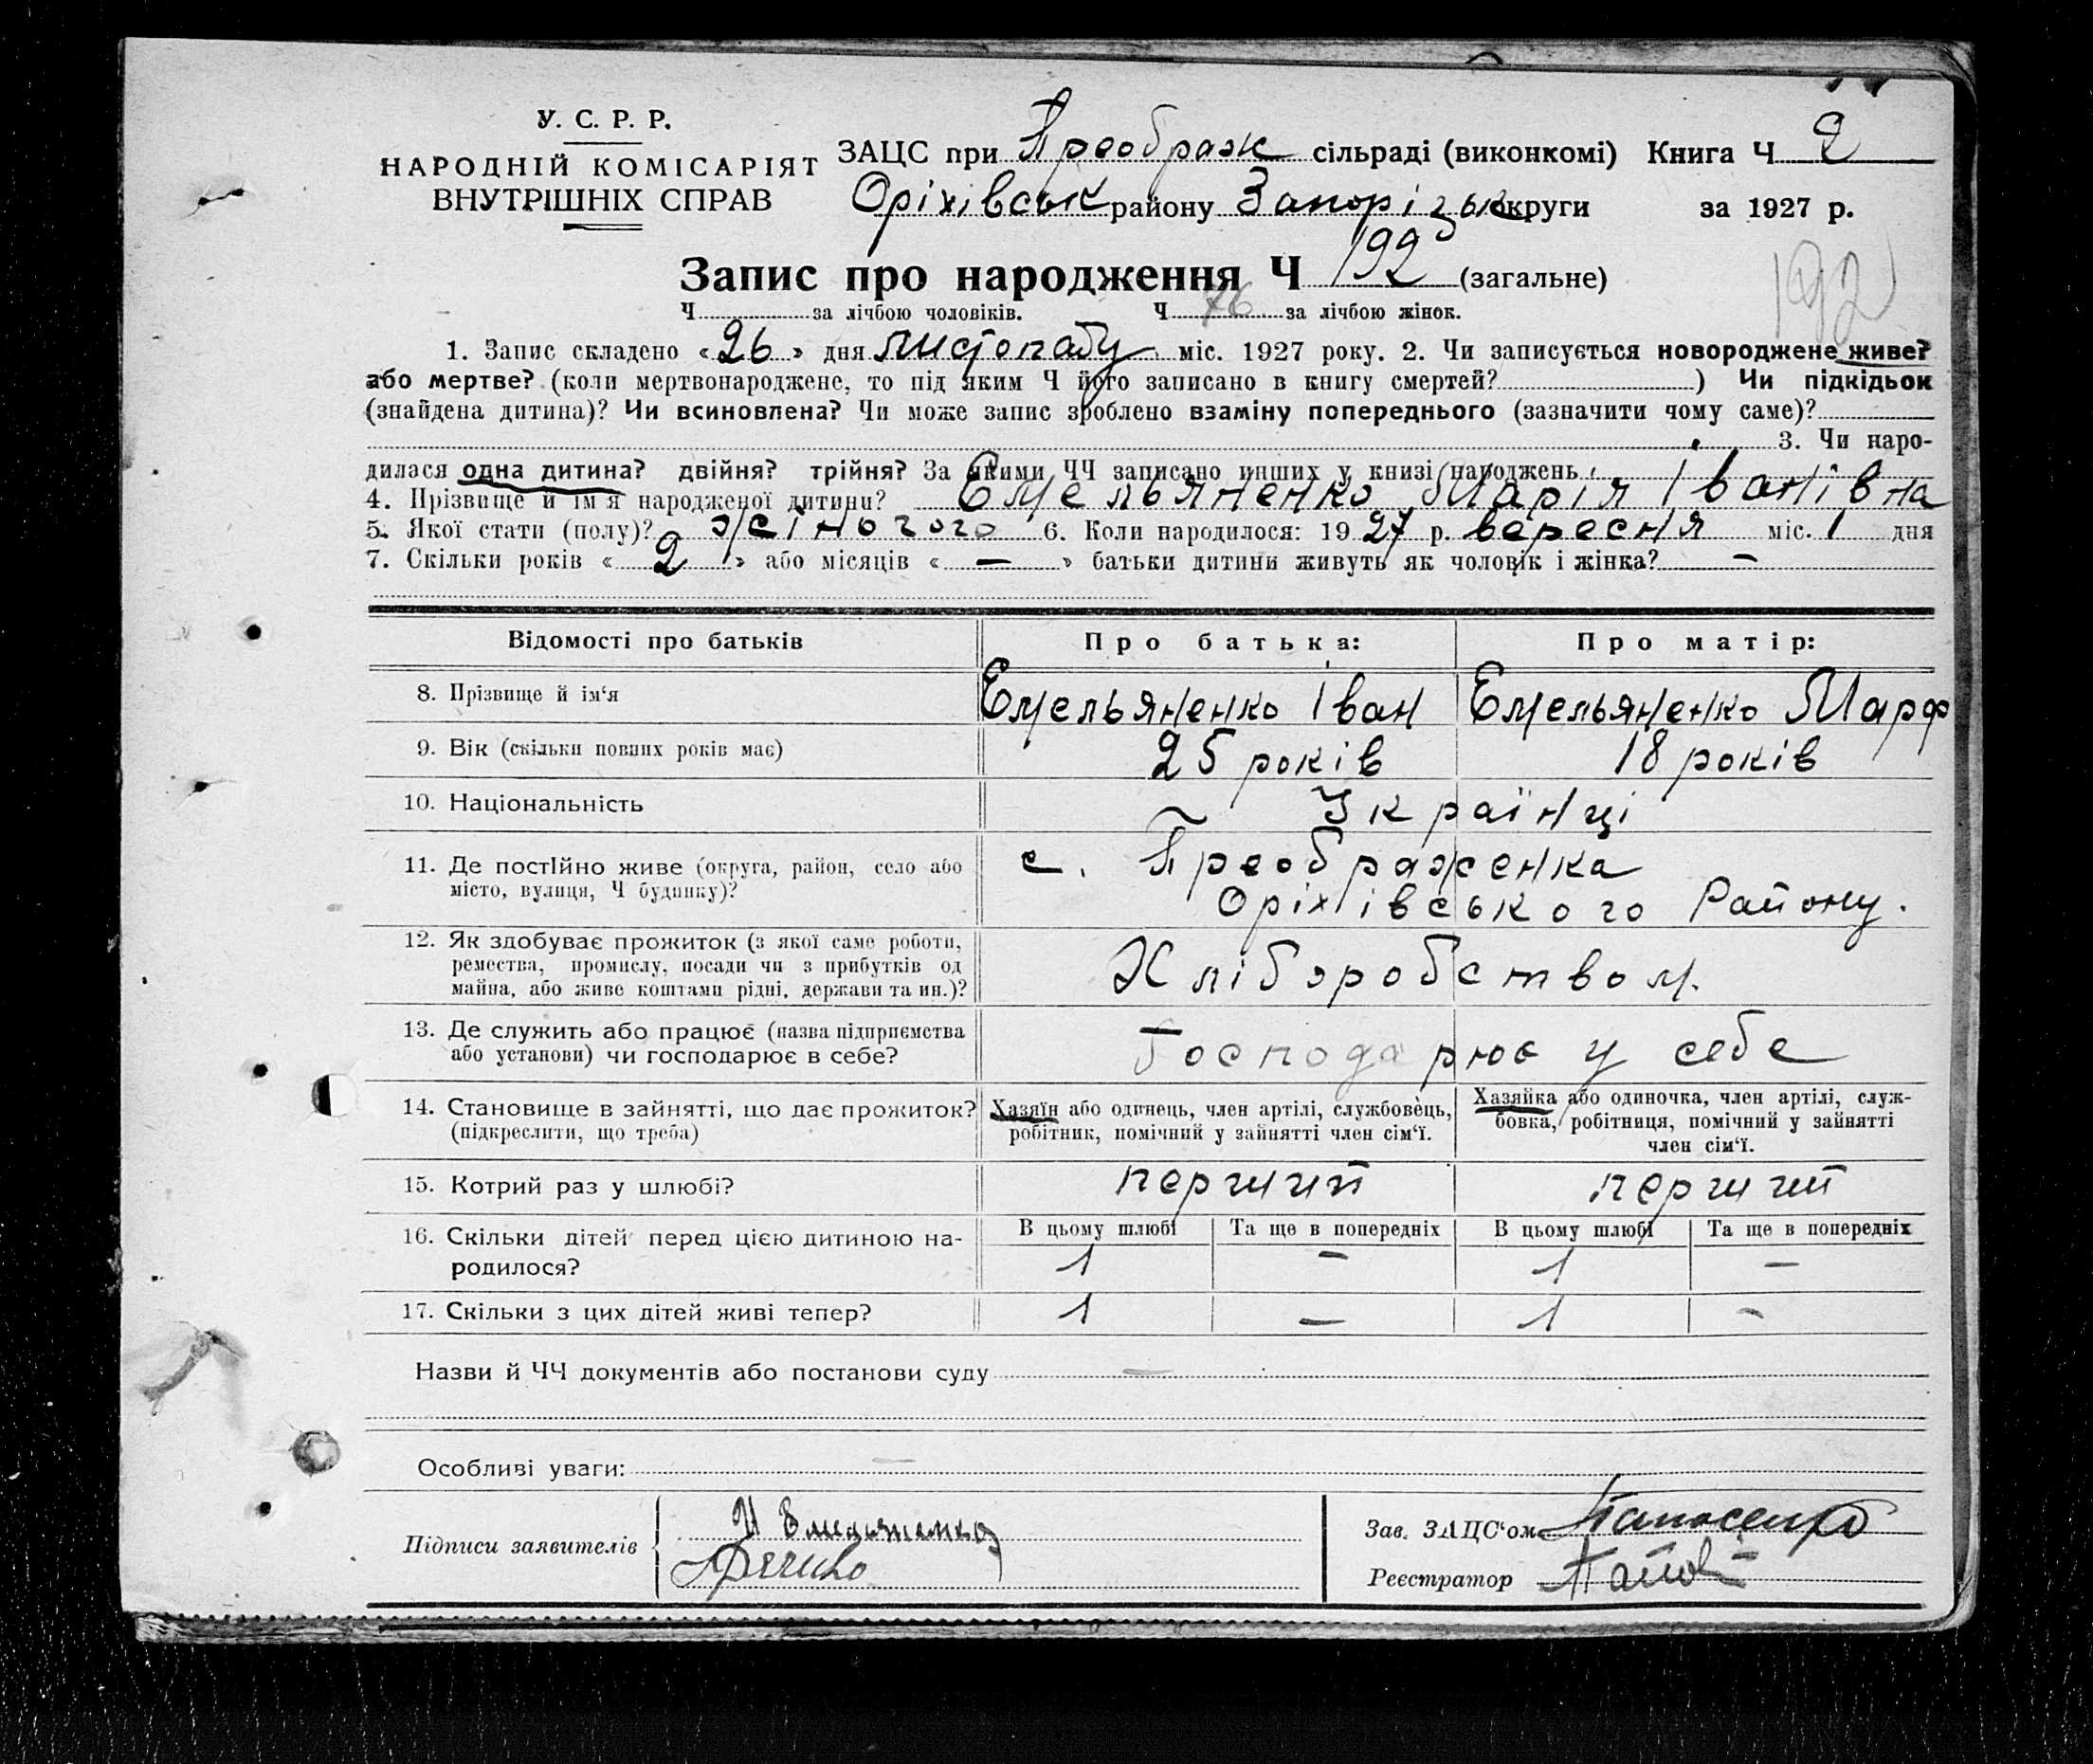 У. С. Р. Р.
НАРОДНІЙ КОМІСАРІЯТ
ВНУТРІШНІХ СПРАВ
ЗАЦС при Преображ сільраді (виконкомі) Книга Ч 2
Оріхівськ району Запорізьк округи за 1927 р.
Запис про народження Ч 192 (загальне)
192
Ч за лічбою чоловіків. Ч 76 за лічбою жінок.
1. Запис складено «26» дня листопаду міс. 1927 року. 2. Чи записується новороджене живе?
або мертве? (коли мертвонароджене, то під яким Ч його записано в книгу смертей? ) Чи підкідьок
(знайдена дитина)? Чи всиновлена? Чи може запис зроблено взаміну попереднього (зазначити чому саме)?
3. Чи наро-
дилася одна дитина? двійня? трійня? За якими ЧЧ записано инших у книзі народжень
4. Прізвище й ім'я народженої дитини? Емельяненко Марія Іванівна
5. Якої стати (полу)? жіночого 6. Коли народилося: 1927 р. вересня міс. 1 дня
7. Скільки років «2» або місяців «—» батьки дитини живуть як чоловік і жінка? —
Відомості про батьків Про батька: Про матір:
8. Прізвище й ім'я Емельяненко Іван Емельяненко Марф
9. Вік (скільки повних років має) 25 років 18 років
10. Національність Українці
11. Де постійно живе (округа, район, село або с. Преображенка
місто, вулиця, Ч будинку)? Оріхівського Району.
12. Як здобуває прожиток (з якої саме роботи,
ремества, промислу, посади чи з прибутків од Хліборобством.
майна, або живе коштами рідні, держави та ин.)?
13. Де служить або працює (назва підприємства
або установи) чи господарює в себе? Господарює у себе
14. Становище в зайнятті, що дає прожиток? Хазяїн або одинець, член артілі, службовець, Хазяйка або одиночка, член артілі, служ-
(підкреслити, що треба) робітник, помічний у зайнятті член сім'ї. бовка, робітниця, помічний у зайнятті
член сім'ї.
15. Котрий раз у шлюбі? перший перший
16. Скільки дітей перед цією дитиною на- В цьому шлюбі Та ще в попередніх В цьому шлюбі Та ще в попередніх
родилося? 1 — 1 —
17. Скільки з цих дітей живі тепер? 1 — 1 —
Назви й ЧЧ документів або постанови суду —
Особливі уваги: —
Підписи заявителів И Емельяненко
Зав. ЗАЦС'ом
Реєстратор